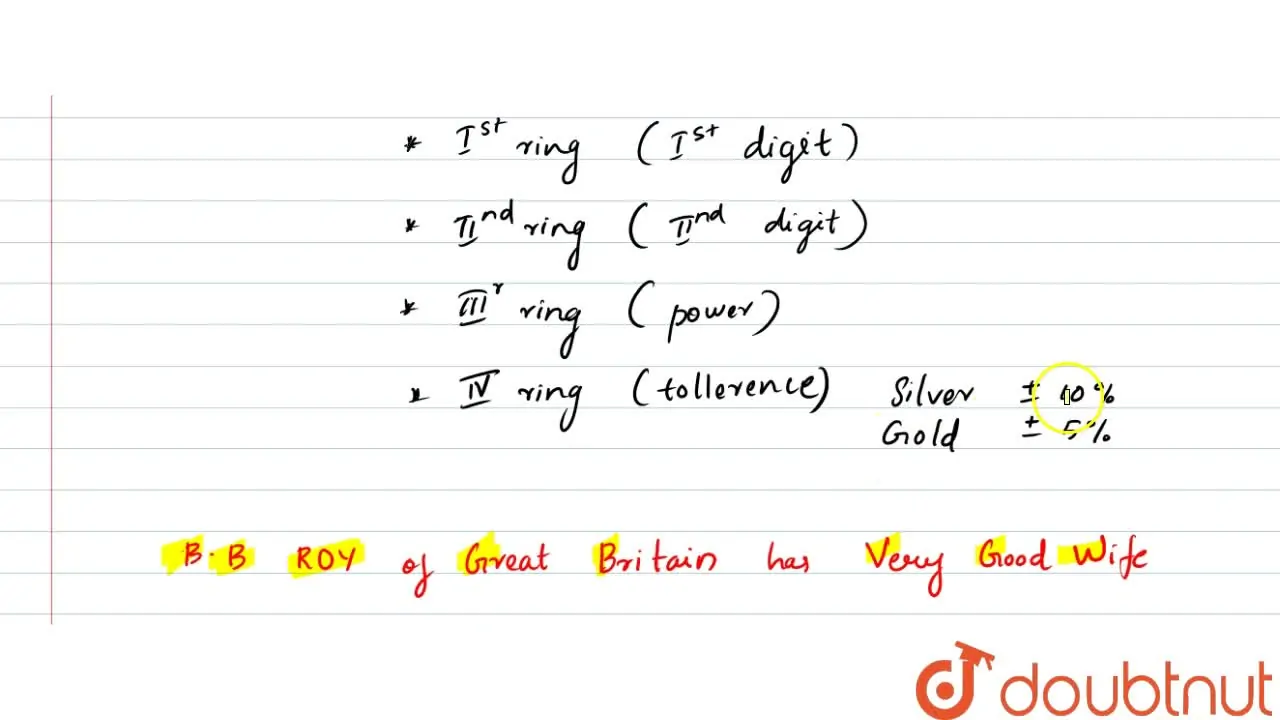 * Ist ring (Ist digit)
* IInd ring (IInd digit)
* IIIr ring (power)
* IV ring (tollerence) Silver ± 10%
Gold ± 5%
B.B ROY of Great Britain has Very Good Wife
doubtnut